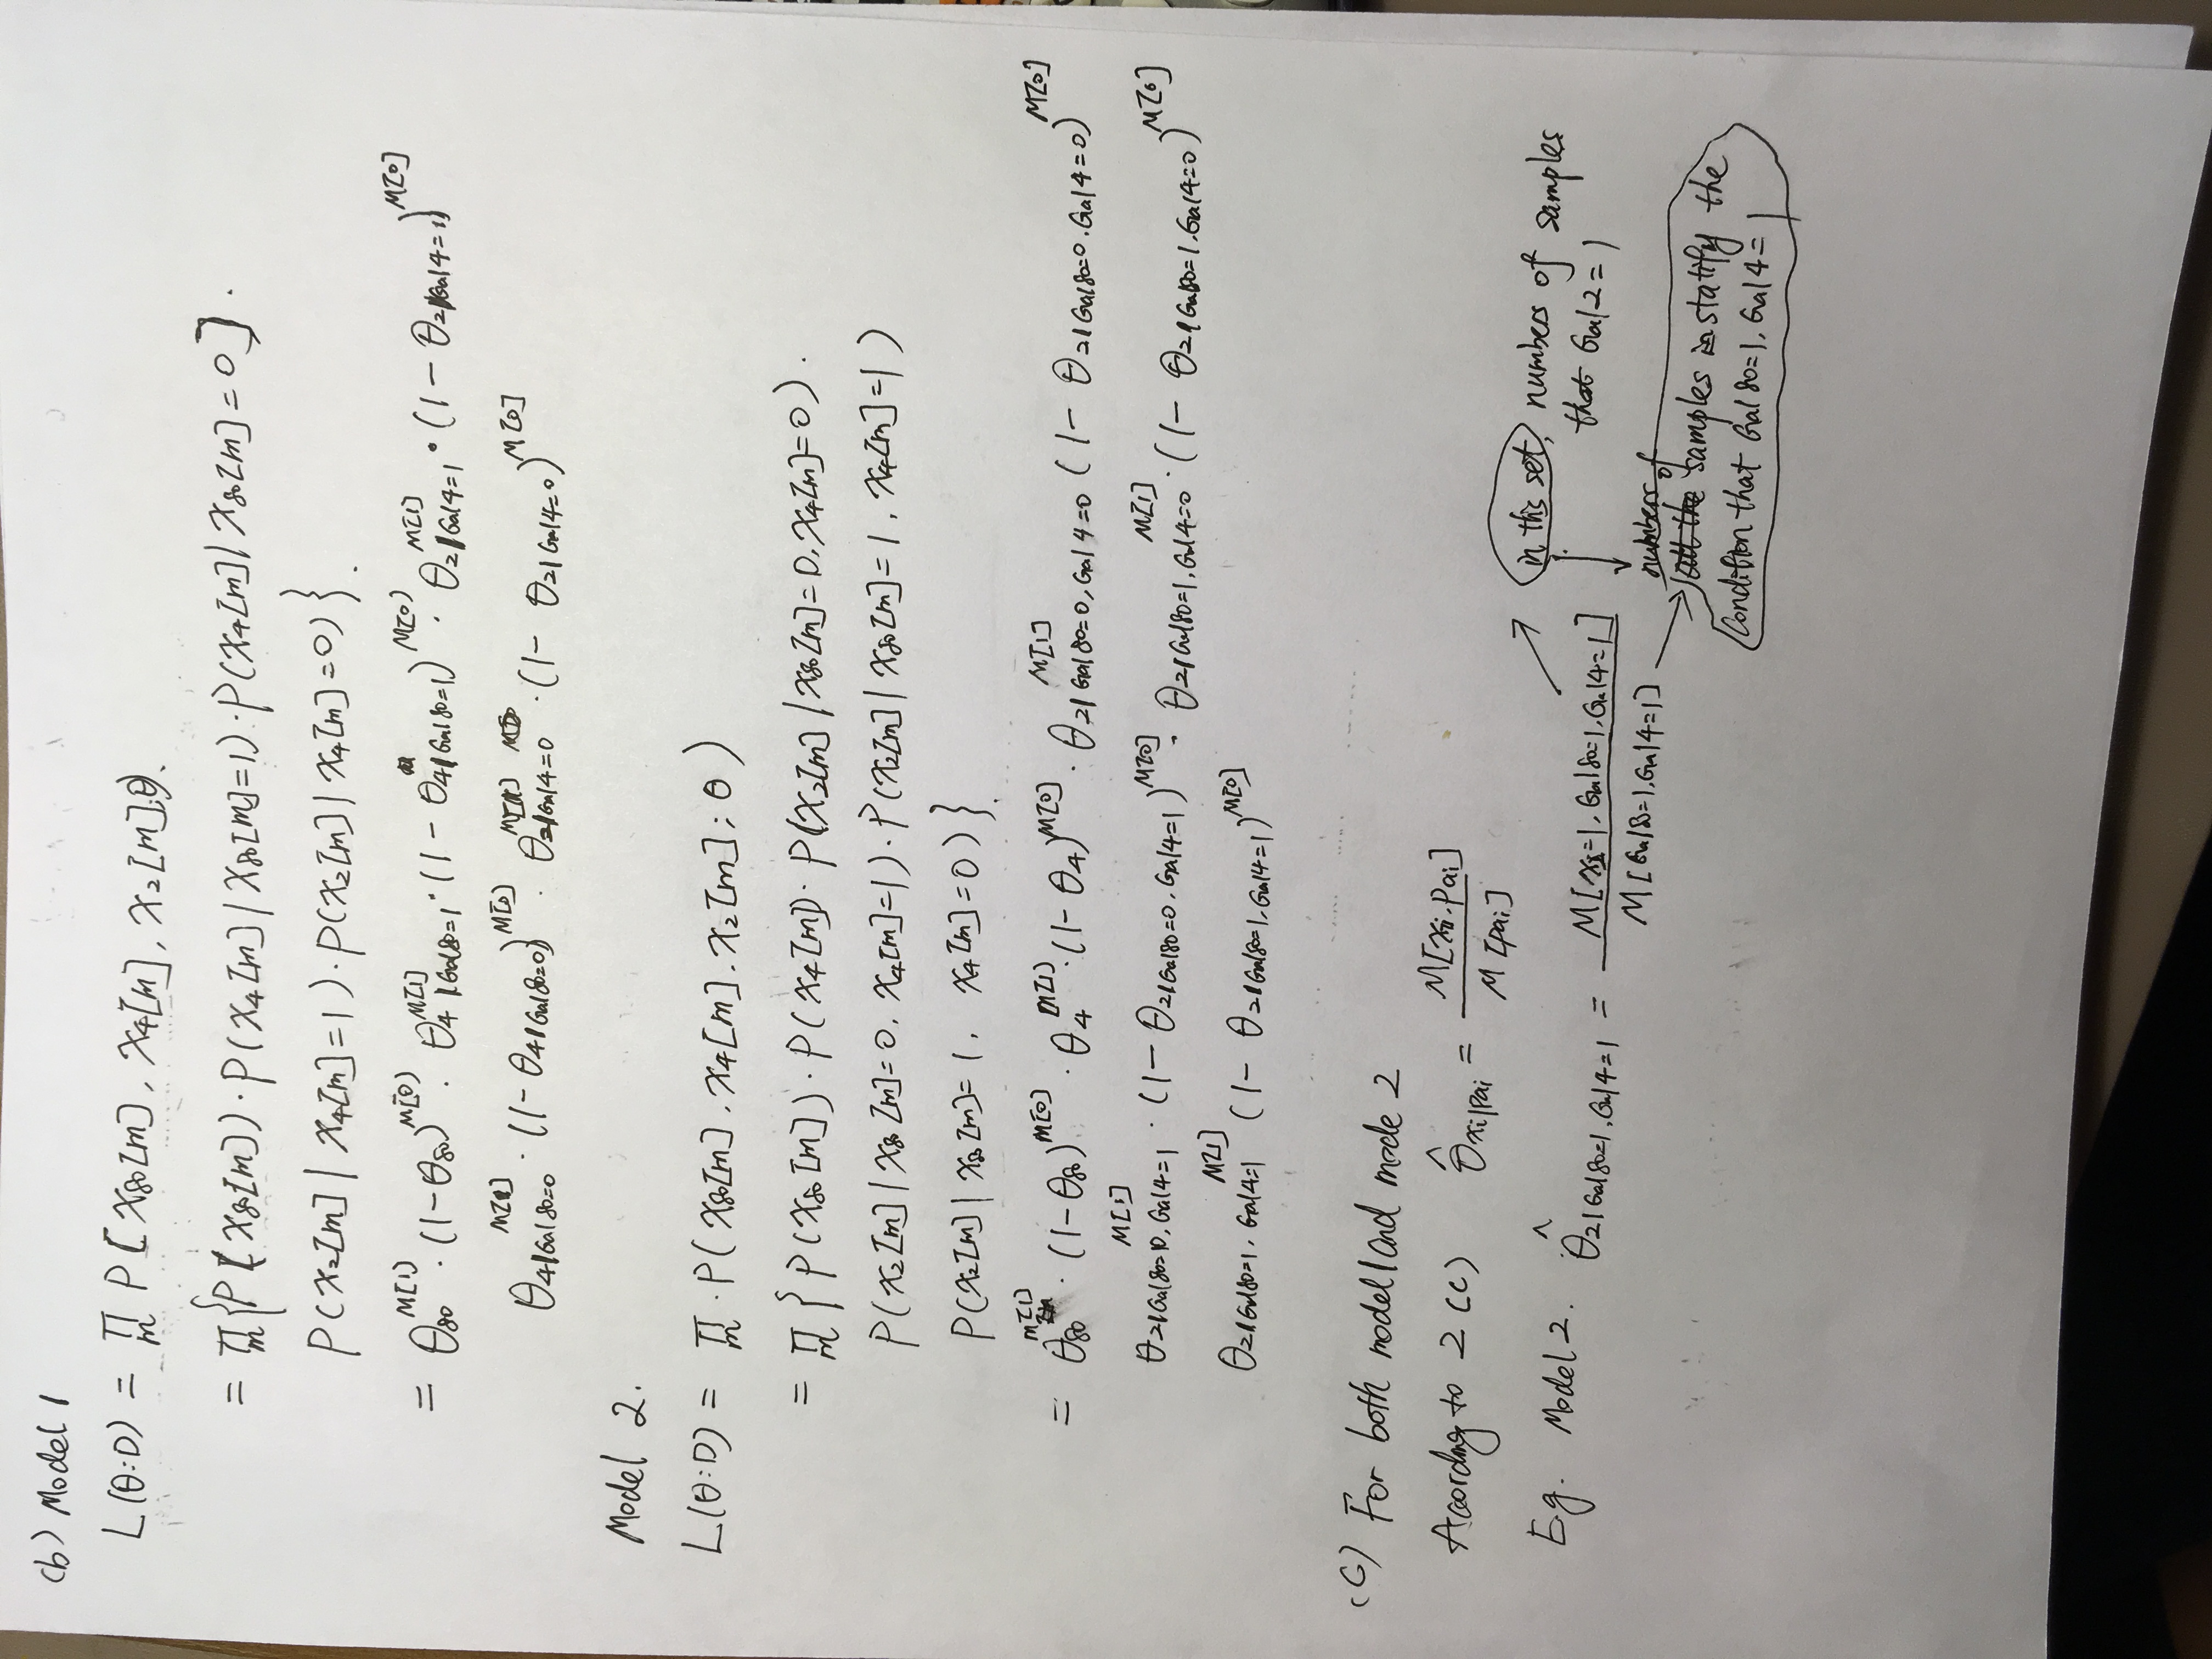 (b) Model 1
L(θ:D) = ∏_m P[x₈₀[m], x₄[m], x₂[m];θ).
= ∏_m {P(x₈₀[m])·P(x₄[m]|x₈₀[m]=1)·P(x₄[m]|x₈₀[m]=0].
P(x₂[m]|x₄[m]=1)·P(x₂[m]|x₄[m]=0)}.
= θ₈₀^M[1]·(1-θ₈₀)^M[0]·θ_4|Gal80=1^M[1]·(1-θ_4|Gal80=1)^M[0]·θ_2|Gal4=1^M[1]·(1-θ_2|Gal4=1)^M[0]
θ_4|Gal80=0^M[1]·(1-θ_4|Gal80=0)^M[0]·θ_2|Gal4=0^M[1]·(1-θ_2|Gal4=0)^M[0]
Model 2.
L(θ:D) = ∏_m·P(x₈₀[m].x₄[m].x₂[m];θ)
= ∏_m {P(x₈₀[m])·P(x₄[m])·P(x₂[m]|x₈₀[m]=0,x₄[m]=0).
P(x₂[m]|x₈₀[m]=0, x₄[m]=1)·P(x₂[m]|x₈₀[m]=1, x₄[m]=1)
P(x₂[m]|x₈₀[m]=1, x₄[m]=0)}.
= θ₈₀^M[1]·(1-θ₈₀)^M[0]·θ₄^M[1]·(1-θ₄)^M[0]·θ_2|Gal80=0,Gal4=0^M[1] (1-θ_2|Gal80=0.Gal4=0)^M[0]
θ_2|Gal80=0,Gal4=1^M[1]·(1-θ_2|Gal80=0.Gal4=1)^M[0]·θ_2|Gal80=1,Gal4=0^M[1]·(1-θ_2|Gal80=1.Gal4=0)^M[0]
θ_2|Gal80=1,Gal4=1^M[1] (1-θ_2|Gal80=1,Gal4=1)^M[0]
(C) For both model 1 and mode 2
Acording to 2(c) θ̂_xi|pai = M[xi.pai] / M[pai]
E.g. Model 2. θ̂_2|Gal80=1,Gal4=1 = M[x₂=1, Gal80=1,Gal4=1] / M[Gal8=1,Gal4=1]
in this set, numbers of samples
that Gal2=1
numbers of
all the samples in statify the
Condition that Gal80=1, Gal4=1